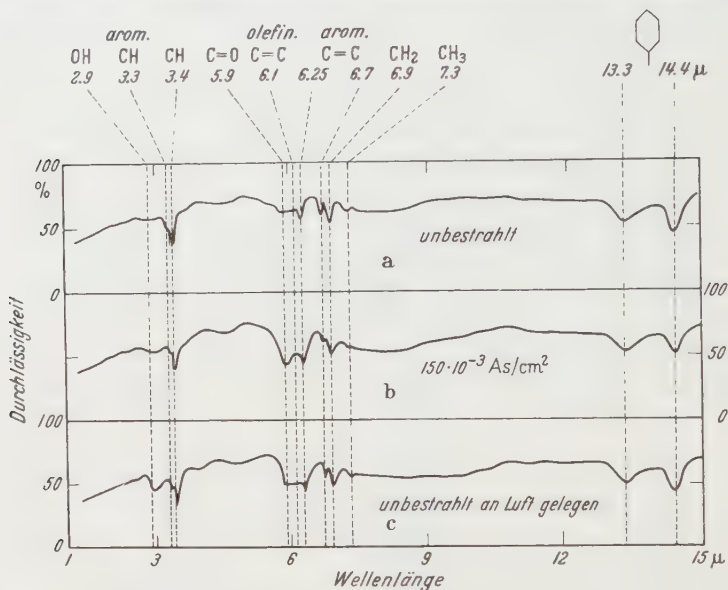 arom. olefin. arom.
OH CH CH C=O C=C C=C CH₂ CH₃
2.9 3.3 3.4 5.9 6.1 6.25 6.7 6.9 7.3 13.3 14.4 μ
100
%
50
0
unbestrahlt
a
100
50
0
150·10⁻³ As/cm²
b
100
50
0
unbestrahlt an Luft gelegen
c
Durchlässigkeit
1 3 6 9 12 15 μ
Wellenlänge